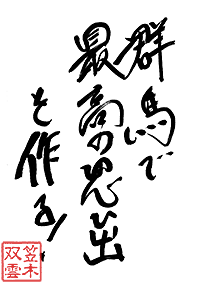 群馬で
最高の思い出
を作る!
笠木
双雲